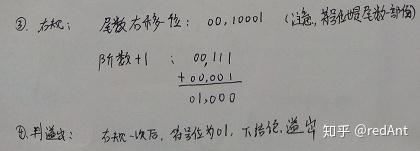 ③. 右规: 尾数右移一位: 00,10001 (注意, 符号位也是尾数一部份)
阶数+1 : 00,111
+00,001
01,000
④. 判溢出: 右规一次后, 符号位为01, 下结论, 溢出
知乎 @redAnt